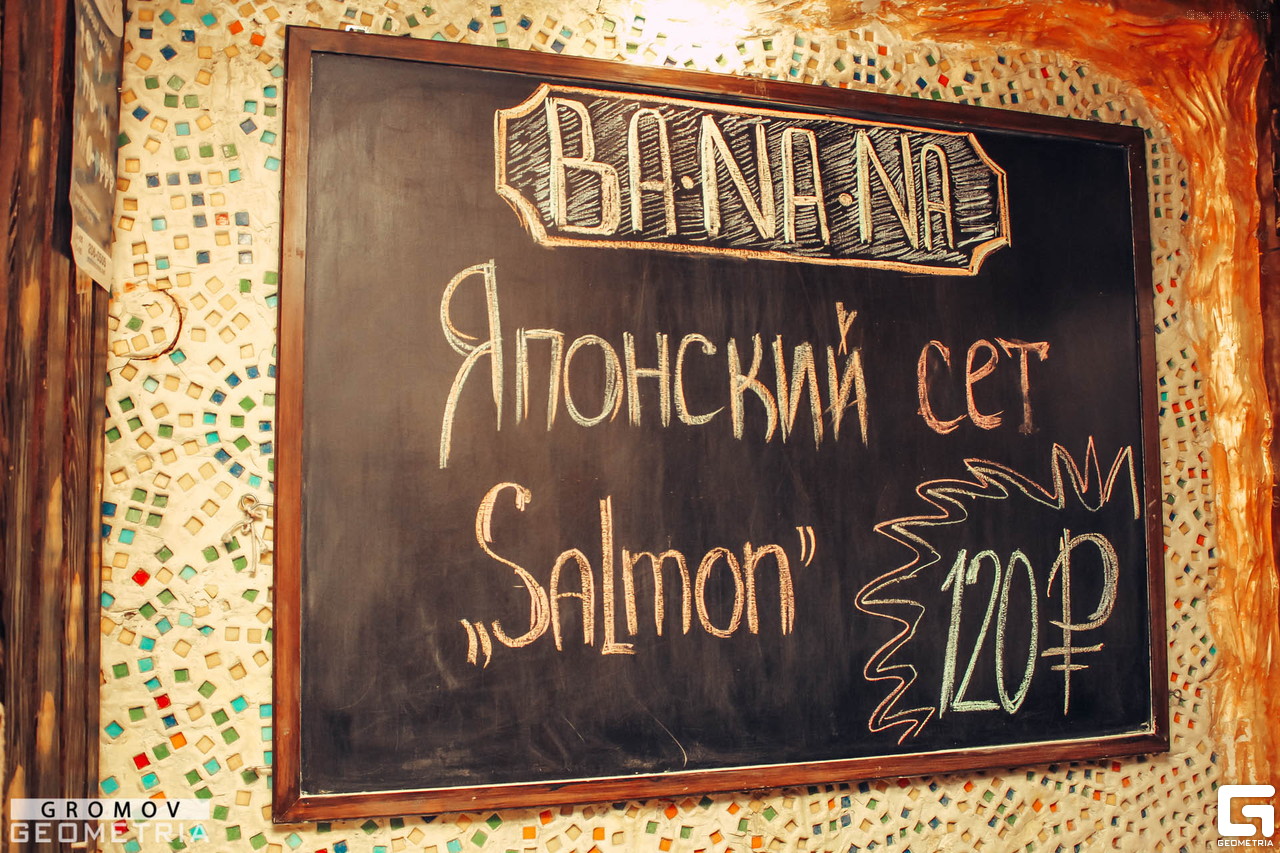 Geometria
BA·NA·NA
Японский сет
„Salmon”
120₽
GROMOV
GEOMETRIA
GEOMETRIA